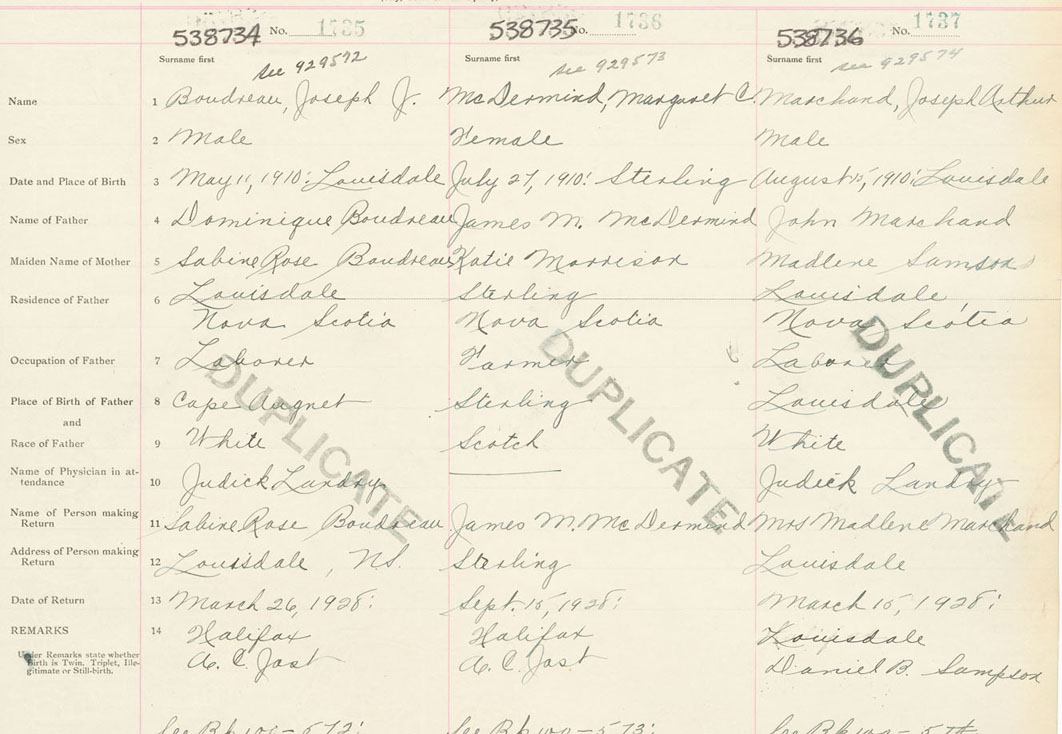 538734 No. 1735 538735 No. 1736 538736 No. 1737
Surname first Surname first Surname first
See 929572 See 929573 See 929574
Name 1 Boudreau, Joseph J. McDermind, Margaret C. Marchand, Joseph Arthur
Sex 2 Male Female Male
Date and Place of Birth 3 May 11, 1910: Louisdale July 27, 1910: Sterling August 15, 1910: Louisdale
Name of Father 4 Dominique Boudreau James M. McDermind John Marchand
Maiden Name of Mother 5 Sabine Rose Boudreau Katie Morrison Madlene Samson
Residence of Father 6 Louisdale Sterling Louisdale,
Nova Scotia Nova Scotia Nova Scotia
Occupation of Father 7 Laborer Farmer Laborer
Place of Birth of Father 8 Cape Auguet Sterling Louisdale
and
Race of Father 9 White Scotch White
Name of Physician in at-
tendance 10 Judick Landry Judick Landry
Name of Person making
Return 11 Sabine Rose Boudreau James M. McDermind Mrs Madlene Marchand
Address of Person making
Return 12 Louisdale, N.S. Sterling Louisdale
Date of Return 13 March 26, 1928: Sept. 15, 1928: March 15, 1928:
REMARKS 14 Halifax Halifax Louisdale
A. C. Jost A. C. Jost Daniel B. Sampson
Under Remarks state whether
Birth is Twin, Triplet, Ille-
gitimate or Still-birth.
DUPLICATE DUPLICATE DUPLICATE